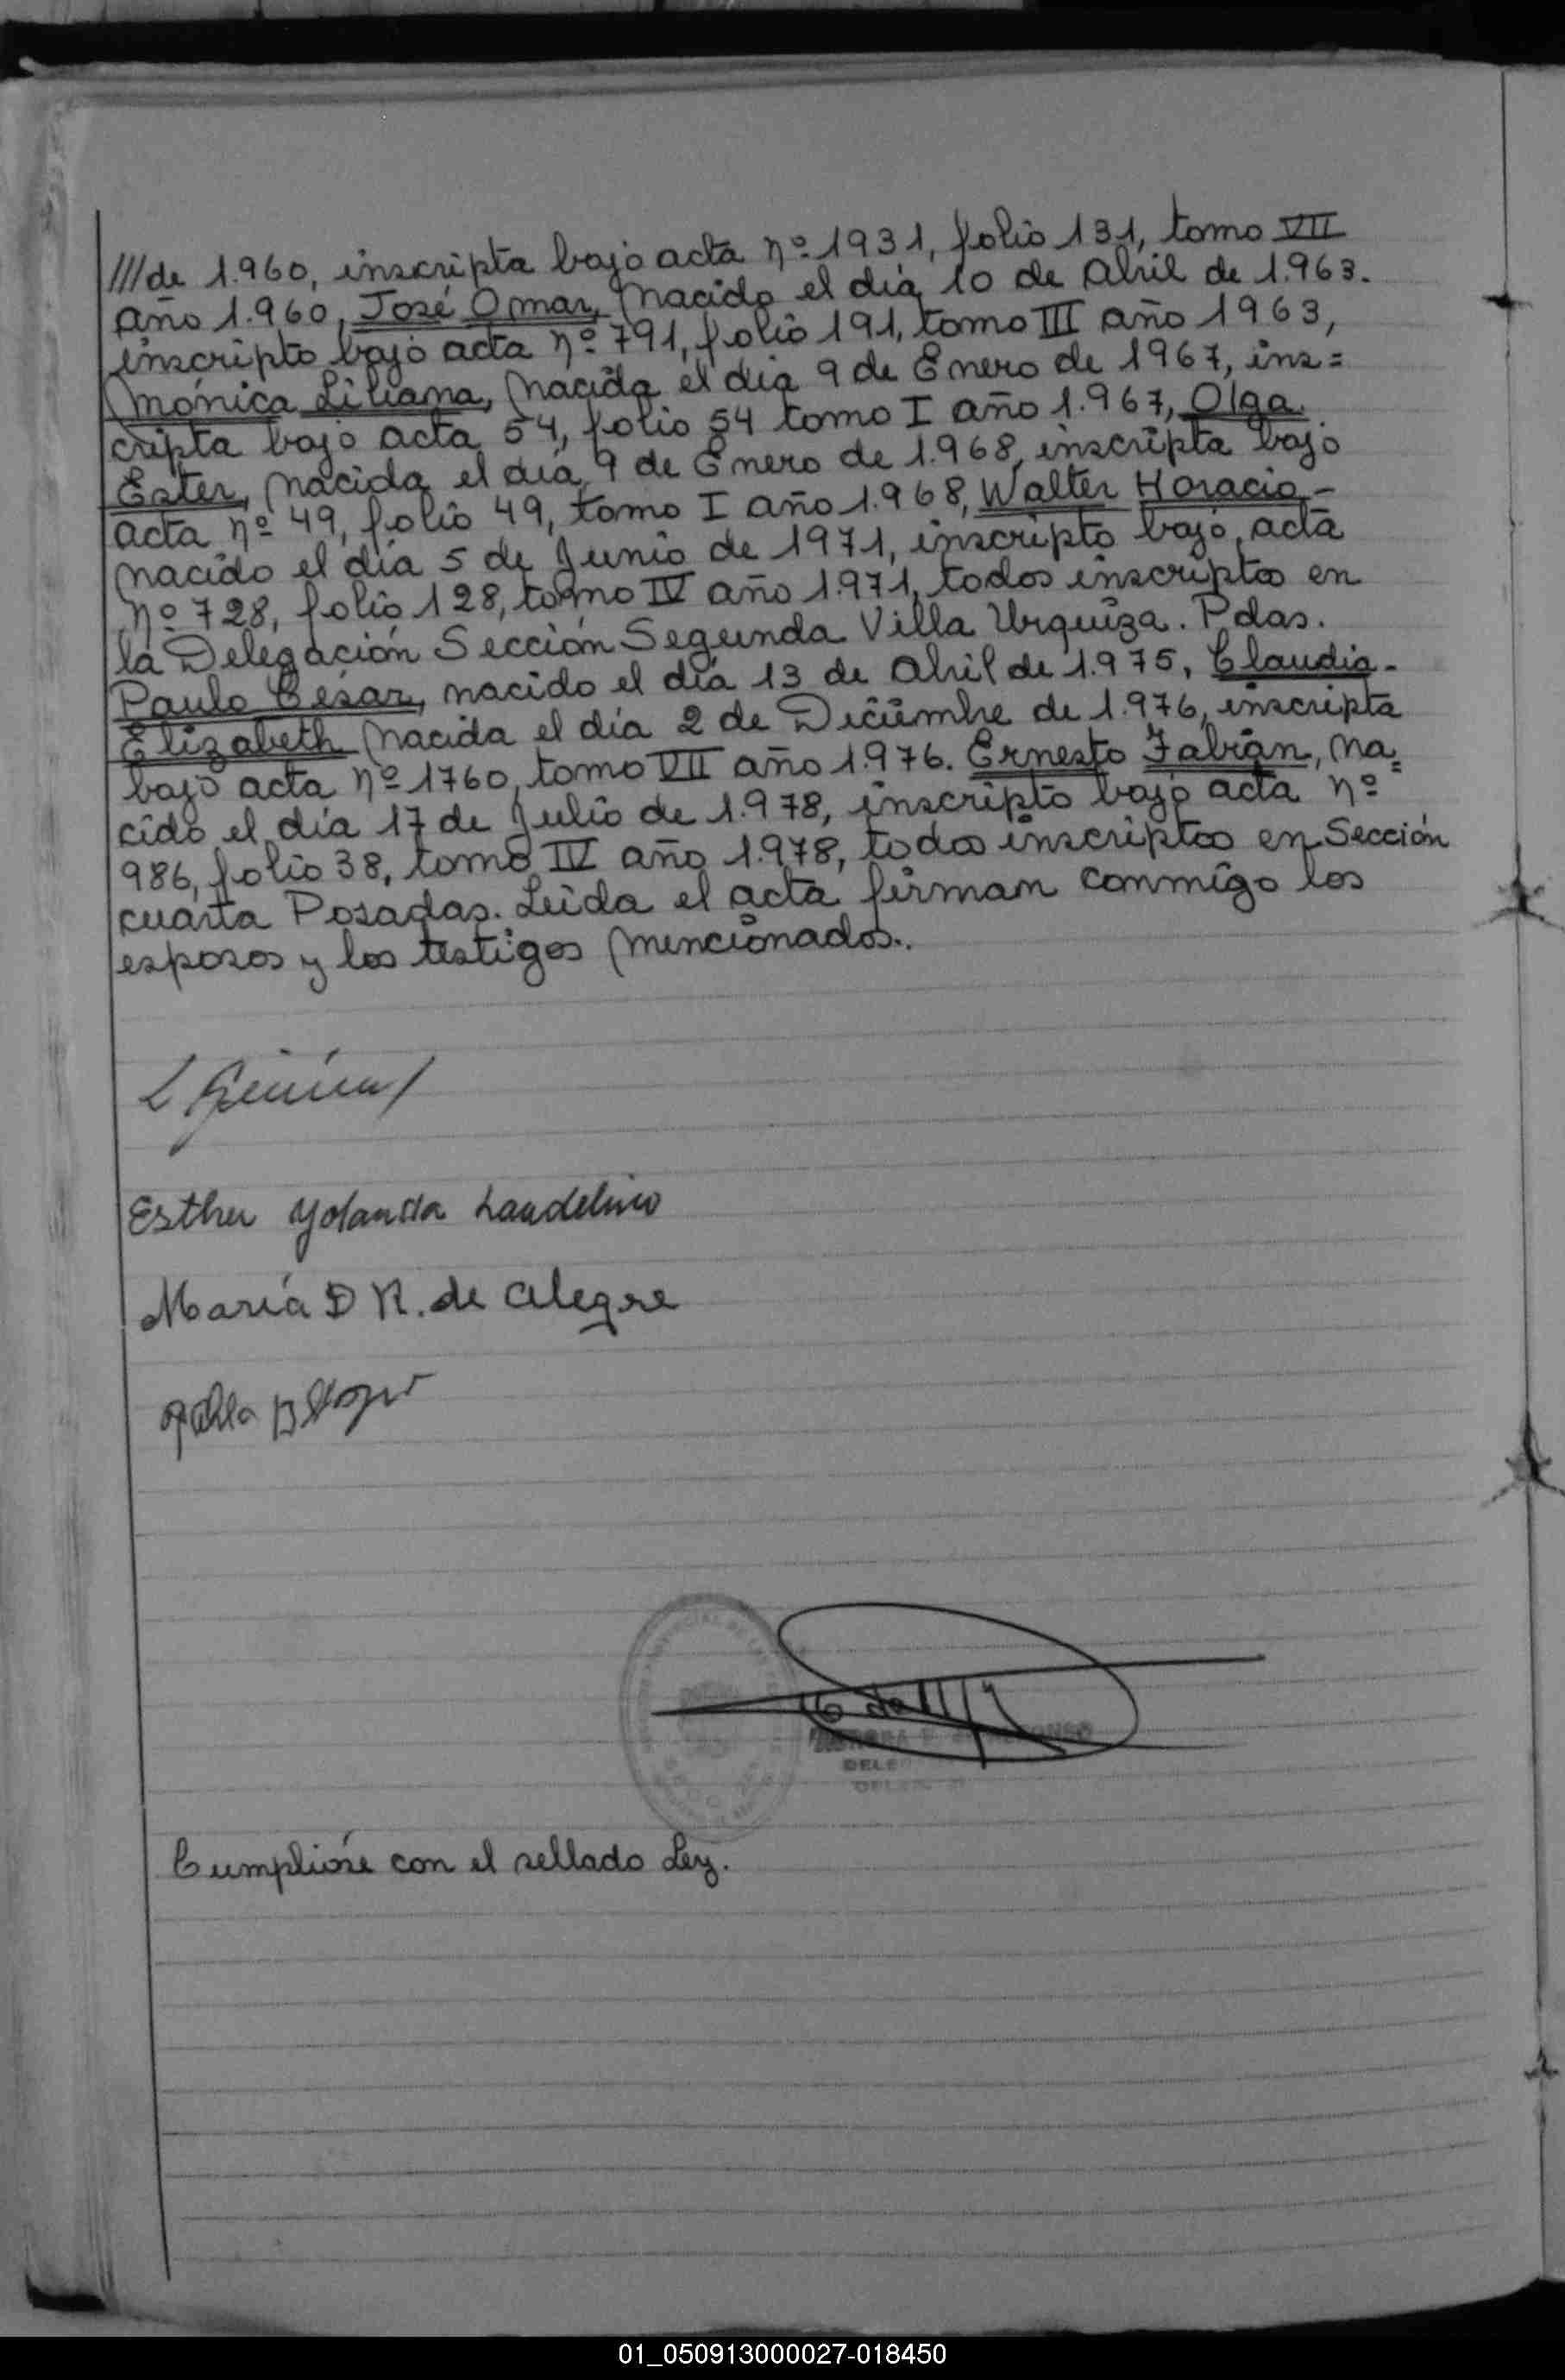 ///de 1.960, inscripta bajo acta nº 1931, folio 131, tomo VII
año 1.960, José Omar, nacido el día 10 de Abril de 1.963.
inscripto bajo acta nº 791, folio 191, tomo III año 1963,
Mónica Liliana, nacida el día 9 de Enero de 1967, ins=
cripta bajo acta 54, folio 54 tomo I año 1.967, Olga
Ester, nacida el día 9 de Enero de 1.968, inscripta bajo
acta nº 49, folio 49, tomo I año 1.968, Walter Horacio-
nacido el día 5 de Junio de 1971, inscripto bajo acta
nº 728, folio 128, tomo IV año 1.971, todos inscriptos en
la Delegación Sección Segunda Villa Urquiza. Pdas.
Paulo César, nacido el día 13 de Abril de 1.975, Claudia-
Elizabeth nacida el día 2 de Diciembre de 1.976, inscripta
bajo acta nº 1760, tomo VII año 1.976. Ernesto Fabián, na=
cido el día 17 de Julio de 1.978, inscripto bajo acta nº
986, folio 38, tomo IV año 1.978, todos inscriptos en Sección
cuarta Posadas. Leída el acta firman conmigo los
esposos y los testigos mencionados..
Esther Yolanda Landelino
María D R. de Alegre
Cumplióse con el sellado Ley.
01_050913000027-018450